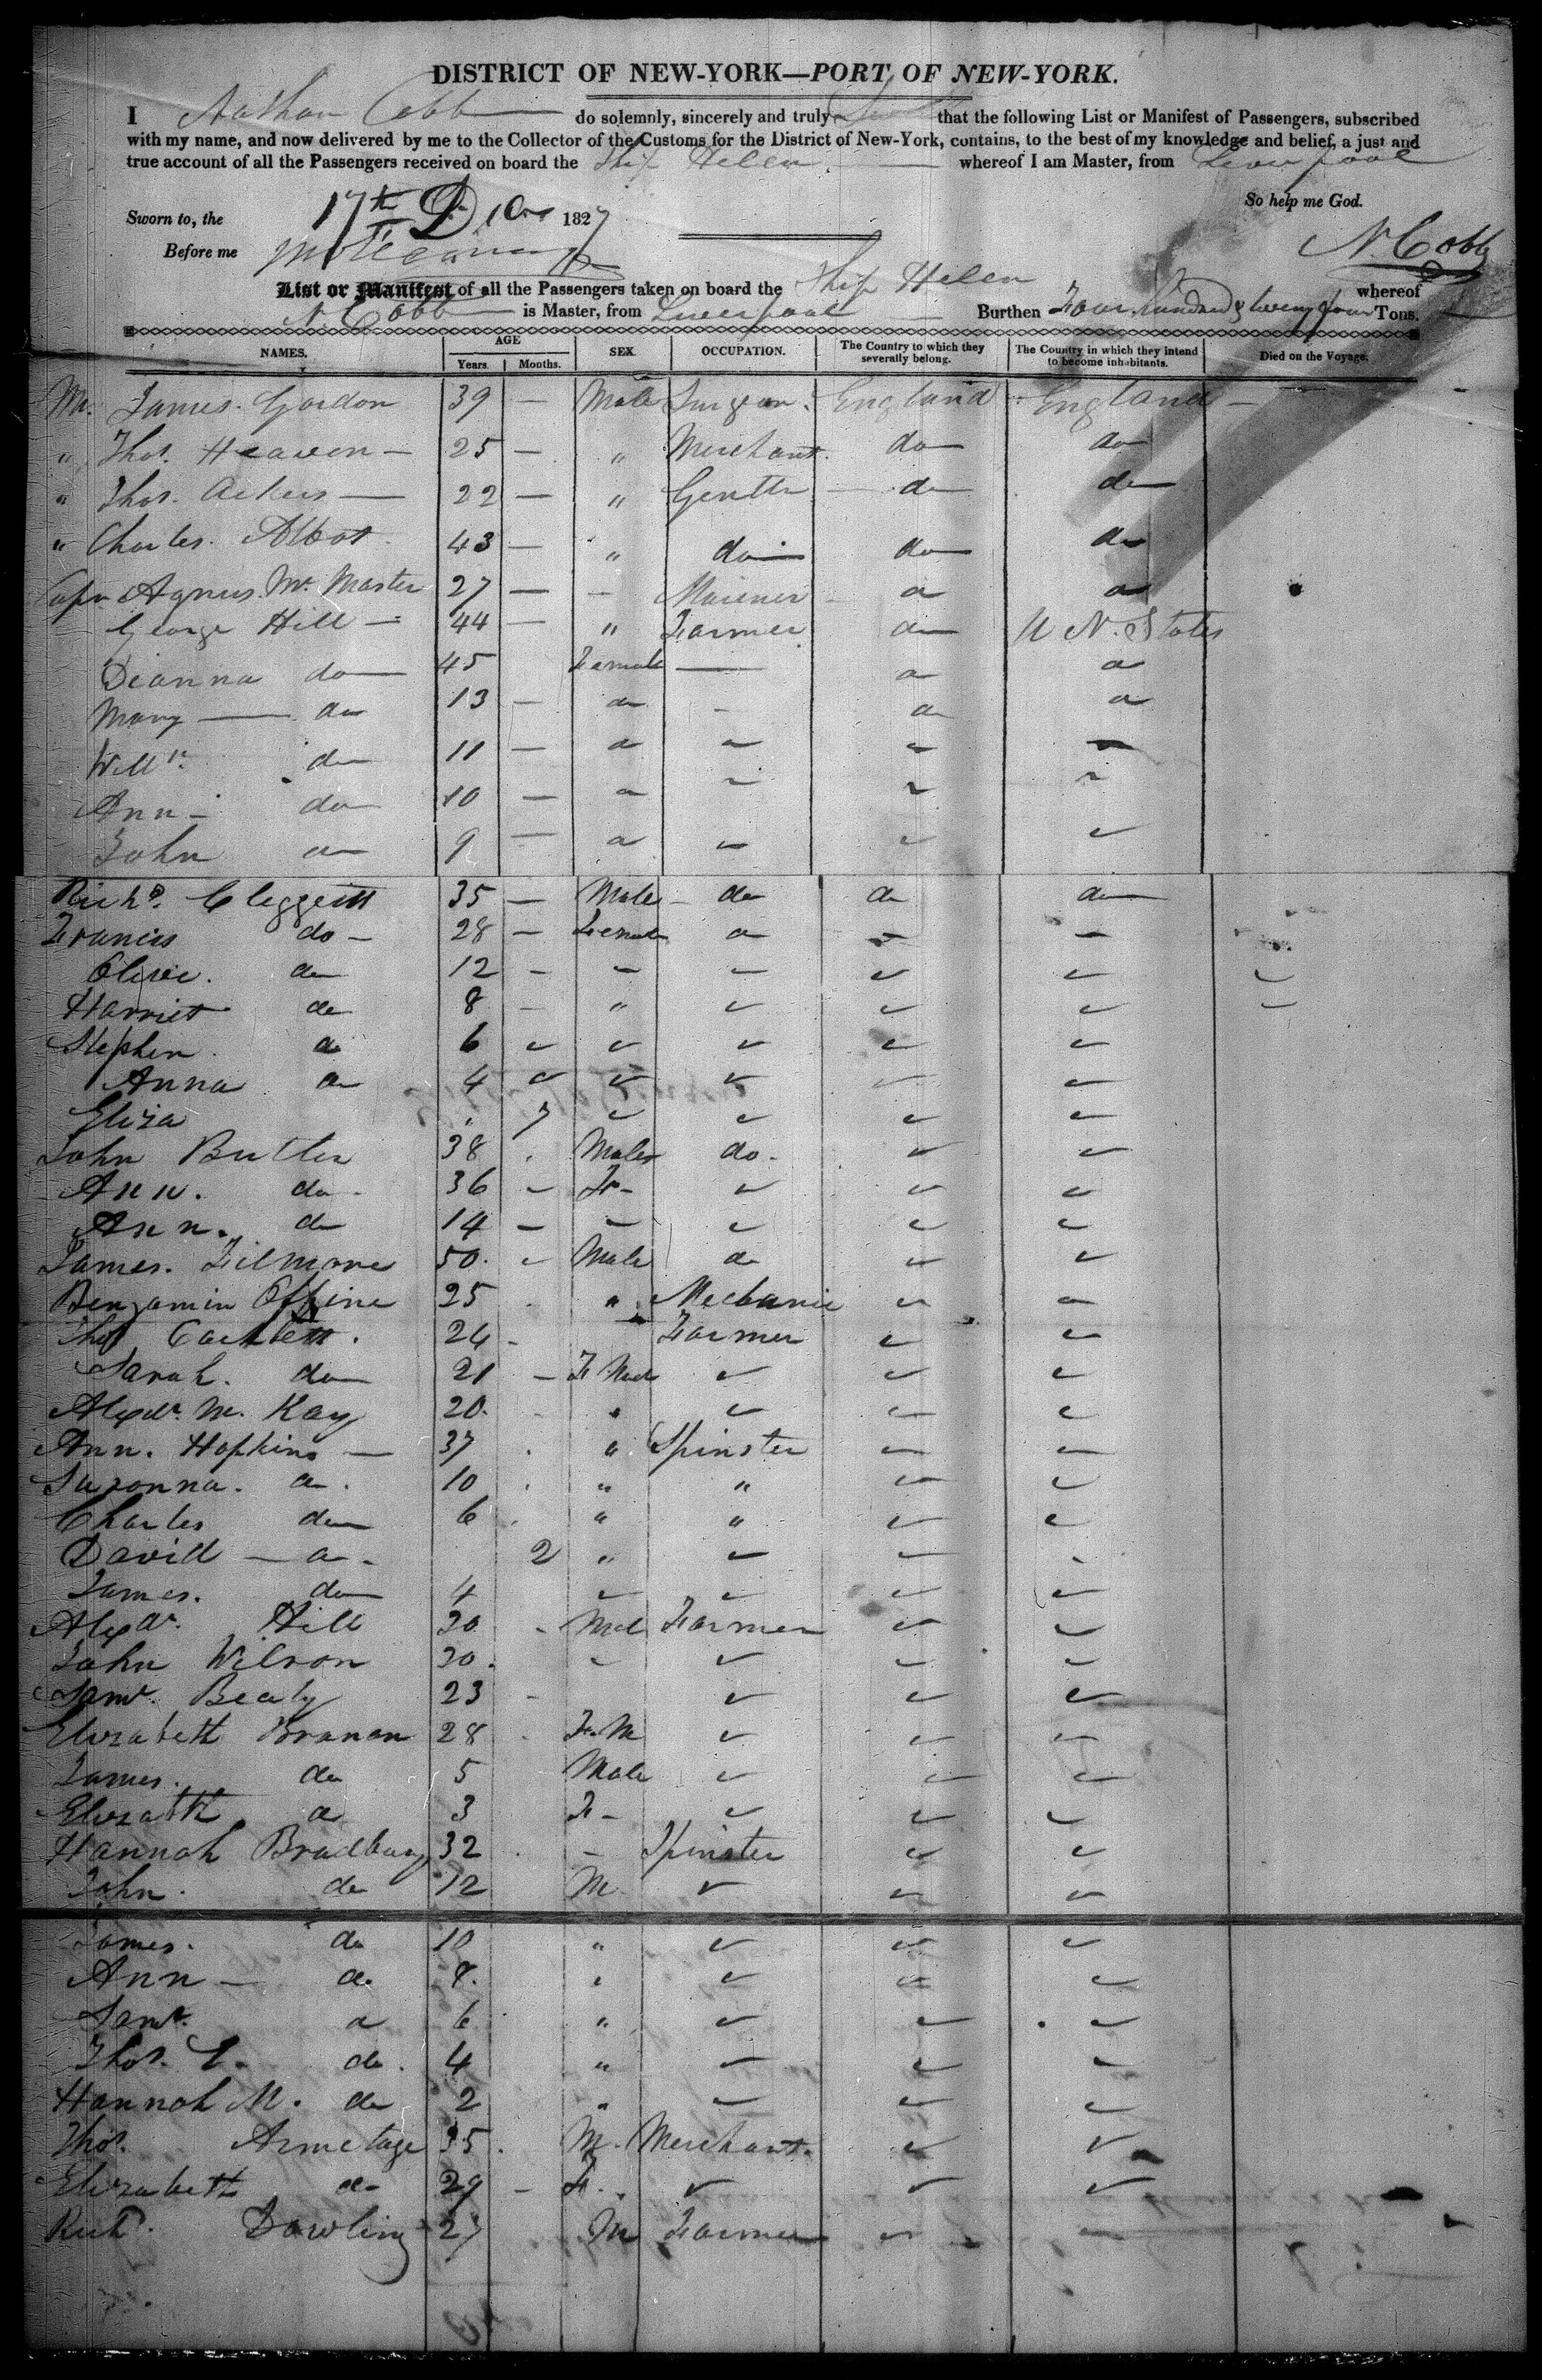 DISTRICT OF NEW-YORK—PORT OF NEW-YORK.
I Nathan Cobb do solemnly, sincerely and truly that the following List or Manifest of Passengers, subscribed
with my name, and now delivered by me to the Collector of the Customs for the District of New-York, contains, to the best of my knowledge and belief, a just and
true account of all the Passengers received on board the Ship Helen whereof I am Master, from Liverpool
So help me God.
Sworn to, the 17th Dec 1827
N. Cobb
Before me
List or Manifest of all the Passengers taken on board the Ship Helen whereof
N. Cobb is Master, from Liverpool Burthen Four hundred & twenty four Tons.
NAMES. AGE Years. Months. SEX. OCCUPATION. The Country to which they severally belong. The Country in which they intend to become inhabitants. Died on the Voyage.
Mr. James Gordon 39 — Male Surgeon England England
" Thos. Heaven — 25 — " Merchant do do
" Thos. Ackers — 22 — " Gentln do do
" Charles Abbot 43 — " do do do
Capn Agnus Mc Master 27 — — Mariner do do
George Hill — 44 — " Farmer do U N. States
Dianna do 45 Female — do do
Mary — do 13 — do - do do
Willm do 11 — do do
Ann — do 10 — do
John do 9 — do
Richd. Cleggett 35 — Male do do do
Francis do — 28 — Female do
Olive. do 12 -
Harriet do 8 - "
Stephen do 6
Anna do 4
Eliza 7
John Butler 38 Male do
Ann. do 36 Fe-
Ann. do 14 —
James. Filmore 50 Male do
Benjamin Offine 25 " Mechanic
Thos Cacklett. 24 Farmer
Sarah. do 21 — Fe Male
Alexdr. Mc Kay 20 "
Ann. Hopkins — 37 " Spinster
Suzanna. do 10 " "
Charles do 6 " "
David — do 2 "
James. do 4
Alexdr. Hill 30 Mal Farmer
John Wilson 30
Saml. Bealy 23 -
Elizabeth Branan 28 Fe. M
James. do 5 Male
Elizabth do 3 Fe -
Hannah Bradbury 32 — Spinster
John. do 12 M
James. do 10 "
Ann — do 8 "
Saml. do 6 "
Thos. E. do 4 "
Hannah M. do 2 "
Thos. Armetage 35 M. Merchant
Elizabeth do 29 — Fe.
Richd. Dowling 27 M Farmer